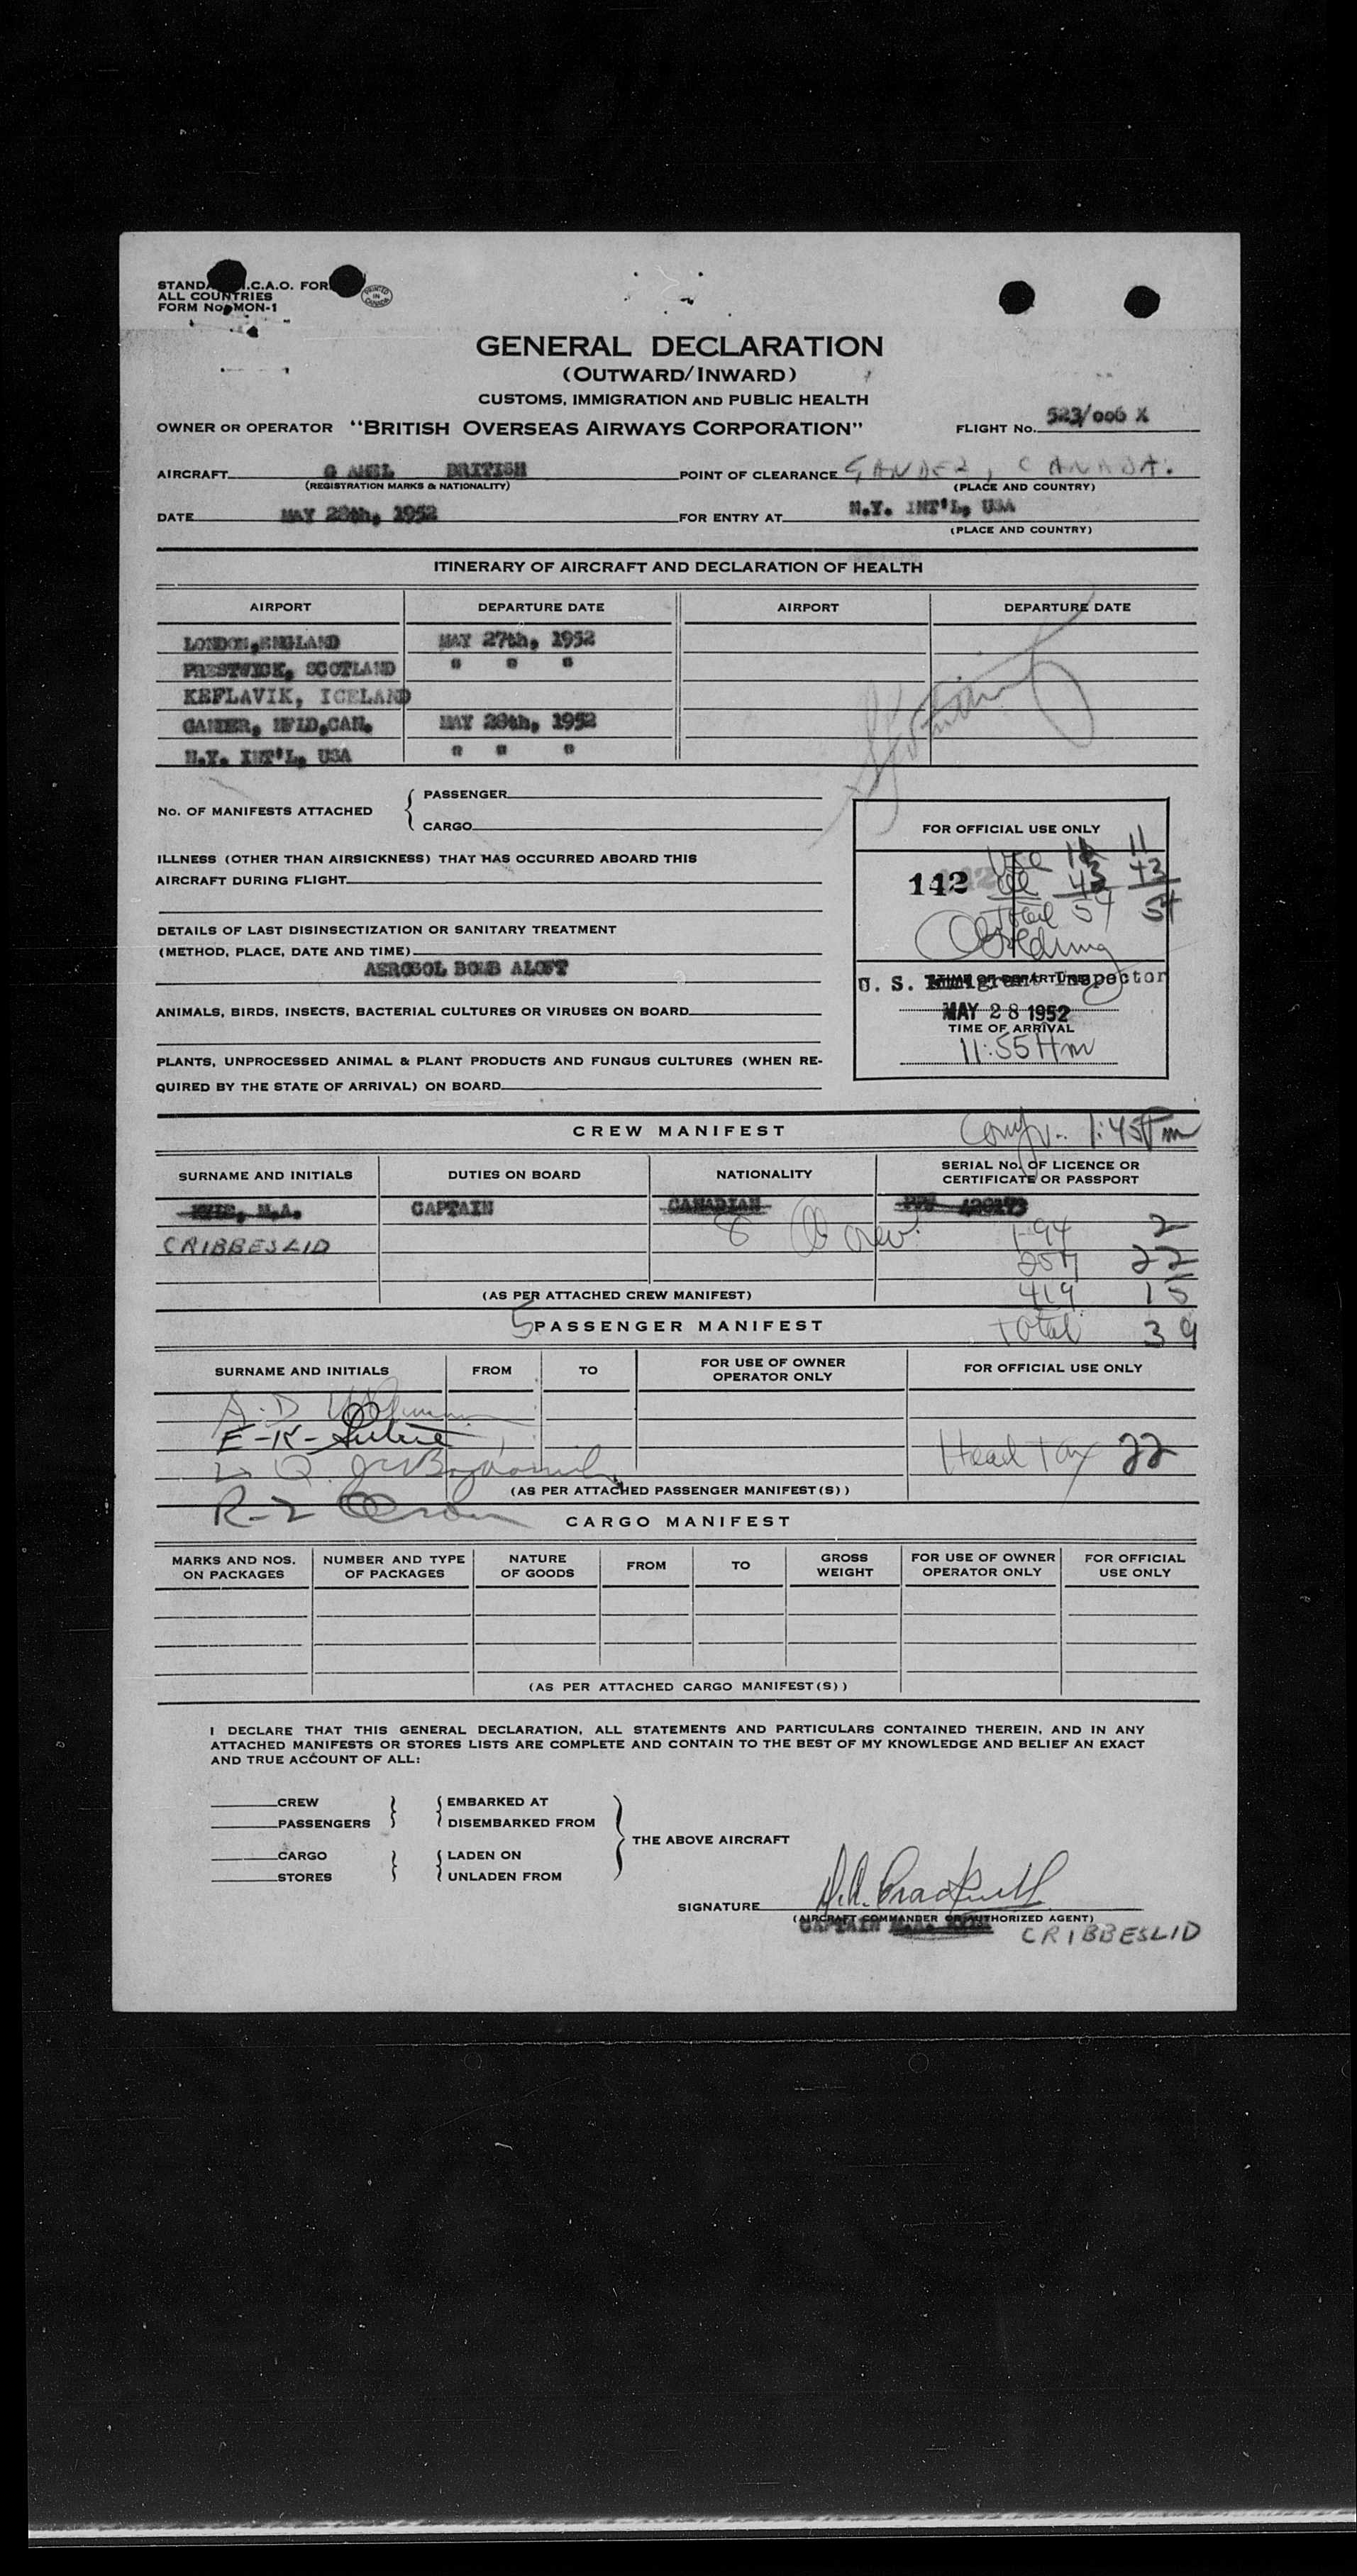 STANDA .C.A.O. FOR
ALL COUNTRIES
FORM No. MON-1
PRINTED IN CANADA
GENERAL DECLARATION
(OUTWARD/INWARD)
CUSTOMS, IMMIGRATION AND PUBLIC HEALTH
OWNER OR OPERATOR "BRITISH OVERSEAS AIRWAYS CORPORATION" FLIGHT No. 523/006 X
AIRCRAFT G BRITISH POINT OF CLEARANCE GANDER, CANADA.
(REGISTRATION MARKS & NATIONALITY) (PLACE AND COUNTRY)
DATE MAY 28th, 1952 FOR ENTRY AT N.Y. INT'L, USA
(PLACE AND COUNTRY)
ITINERARY OF AIRCRAFT AND DECLARATION OF HEALTH
AIRPORT DEPARTURE DATE AIRPORT DEPARTURE DATE
LONDON, ENGLAND MAY 27th, 1952
PRESTWICK, SCOTLAND " " "
KEFLAVIK, ICELAND
GANDER, NFLD, CAN. MAY 28th, 1952
N.Y. INT'L, USA " " "
No. OF MANIFESTS ATTACHED { PASSENGER
CARGO
FOR OFFICIAL USE ONLY
ILLNESS (OTHER THAN AIRSICKNESS) THAT HAS OCCURRED ABOARD THIS
AIRCRAFT DURING FLIGHT
11
142 43 43
54 54
DETAILS OF LAST DISINSECTIZATION OR SANITARY TREATMENT
(METHOD, PLACE, DATE AND TIME)
AEROSOL BOMB ALOFT
U. S. Immigrant Inspector
TIME OF DEPARTURE
ANIMALS, BIRDS, INSECTS, BACTERIAL CULTURES OR VIRUSES ON BOARD
MAY 28 1952
TIME OF ARRIVAL
11:55 Am
PLANTS, UNPROCESSED ANIMAL & PLANT PRODUCTS AND FUNGUS CULTURES (WHEN RE-
QUIRED BY THE STATE OF ARRIVAL) ON BOARD
CREW MANIFEST 1:45 Pm
SURNAME AND INITIALS DUTIES ON BOARD NATIONALITY SERIAL No. OF LICENCE OR
CERTIFICATE OR PASSPORT
M.A. CAPTAIN CANADIAN
8 crew I-94 2
CRIBBESLID 257 22
419 15
(AS PER ATTACHED CREW MANIFEST)
5 PASSENGER MANIFEST Total 39
SURNAME AND INITIALS FROM TO FOR USE OF OWNER
OPERATOR ONLY FOR OFFICIAL USE ONLY
A.D
E-K-
Head Tax 22
(AS PER ATTACHED PASSENGER MANIFEST(S))
R-2
CARGO MANIFEST
MARKS AND NOS.
ON PACKAGES NUMBER AND TYPE
OF PACKAGES NATURE
OF GOODS FROM TO GROSS
WEIGHT FOR USE OF OWNER
OPERATOR ONLY FOR OFFICIAL
USE ONLY
(AS PER ATTACHED CARGO MANIFEST(S))
I DECLARE THAT THIS GENERAL DECLARATION, ALL STATEMENTS AND PARTICULARS CONTAINED THEREIN, AND IN ANY
ATTACHED MANIFESTS OR STORES LISTS ARE COMPLETE AND CONTAIN TO THE BEST OF MY KNOWLEDGE AND BELIEF AN EXACT
AND TRUE ACCOUNT OF ALL:
CREW EMBARKED AT
PASSENGERS DISEMBARKED FROM
THE ABOVE AIRCRAFT
CARGO LADEN ON
STORES UNLADEN FROM
SIGNATURE
(AIRCRAFT COMMANDER OR AUTHORIZED AGENT)
CAPTAIN CRIBBESLID